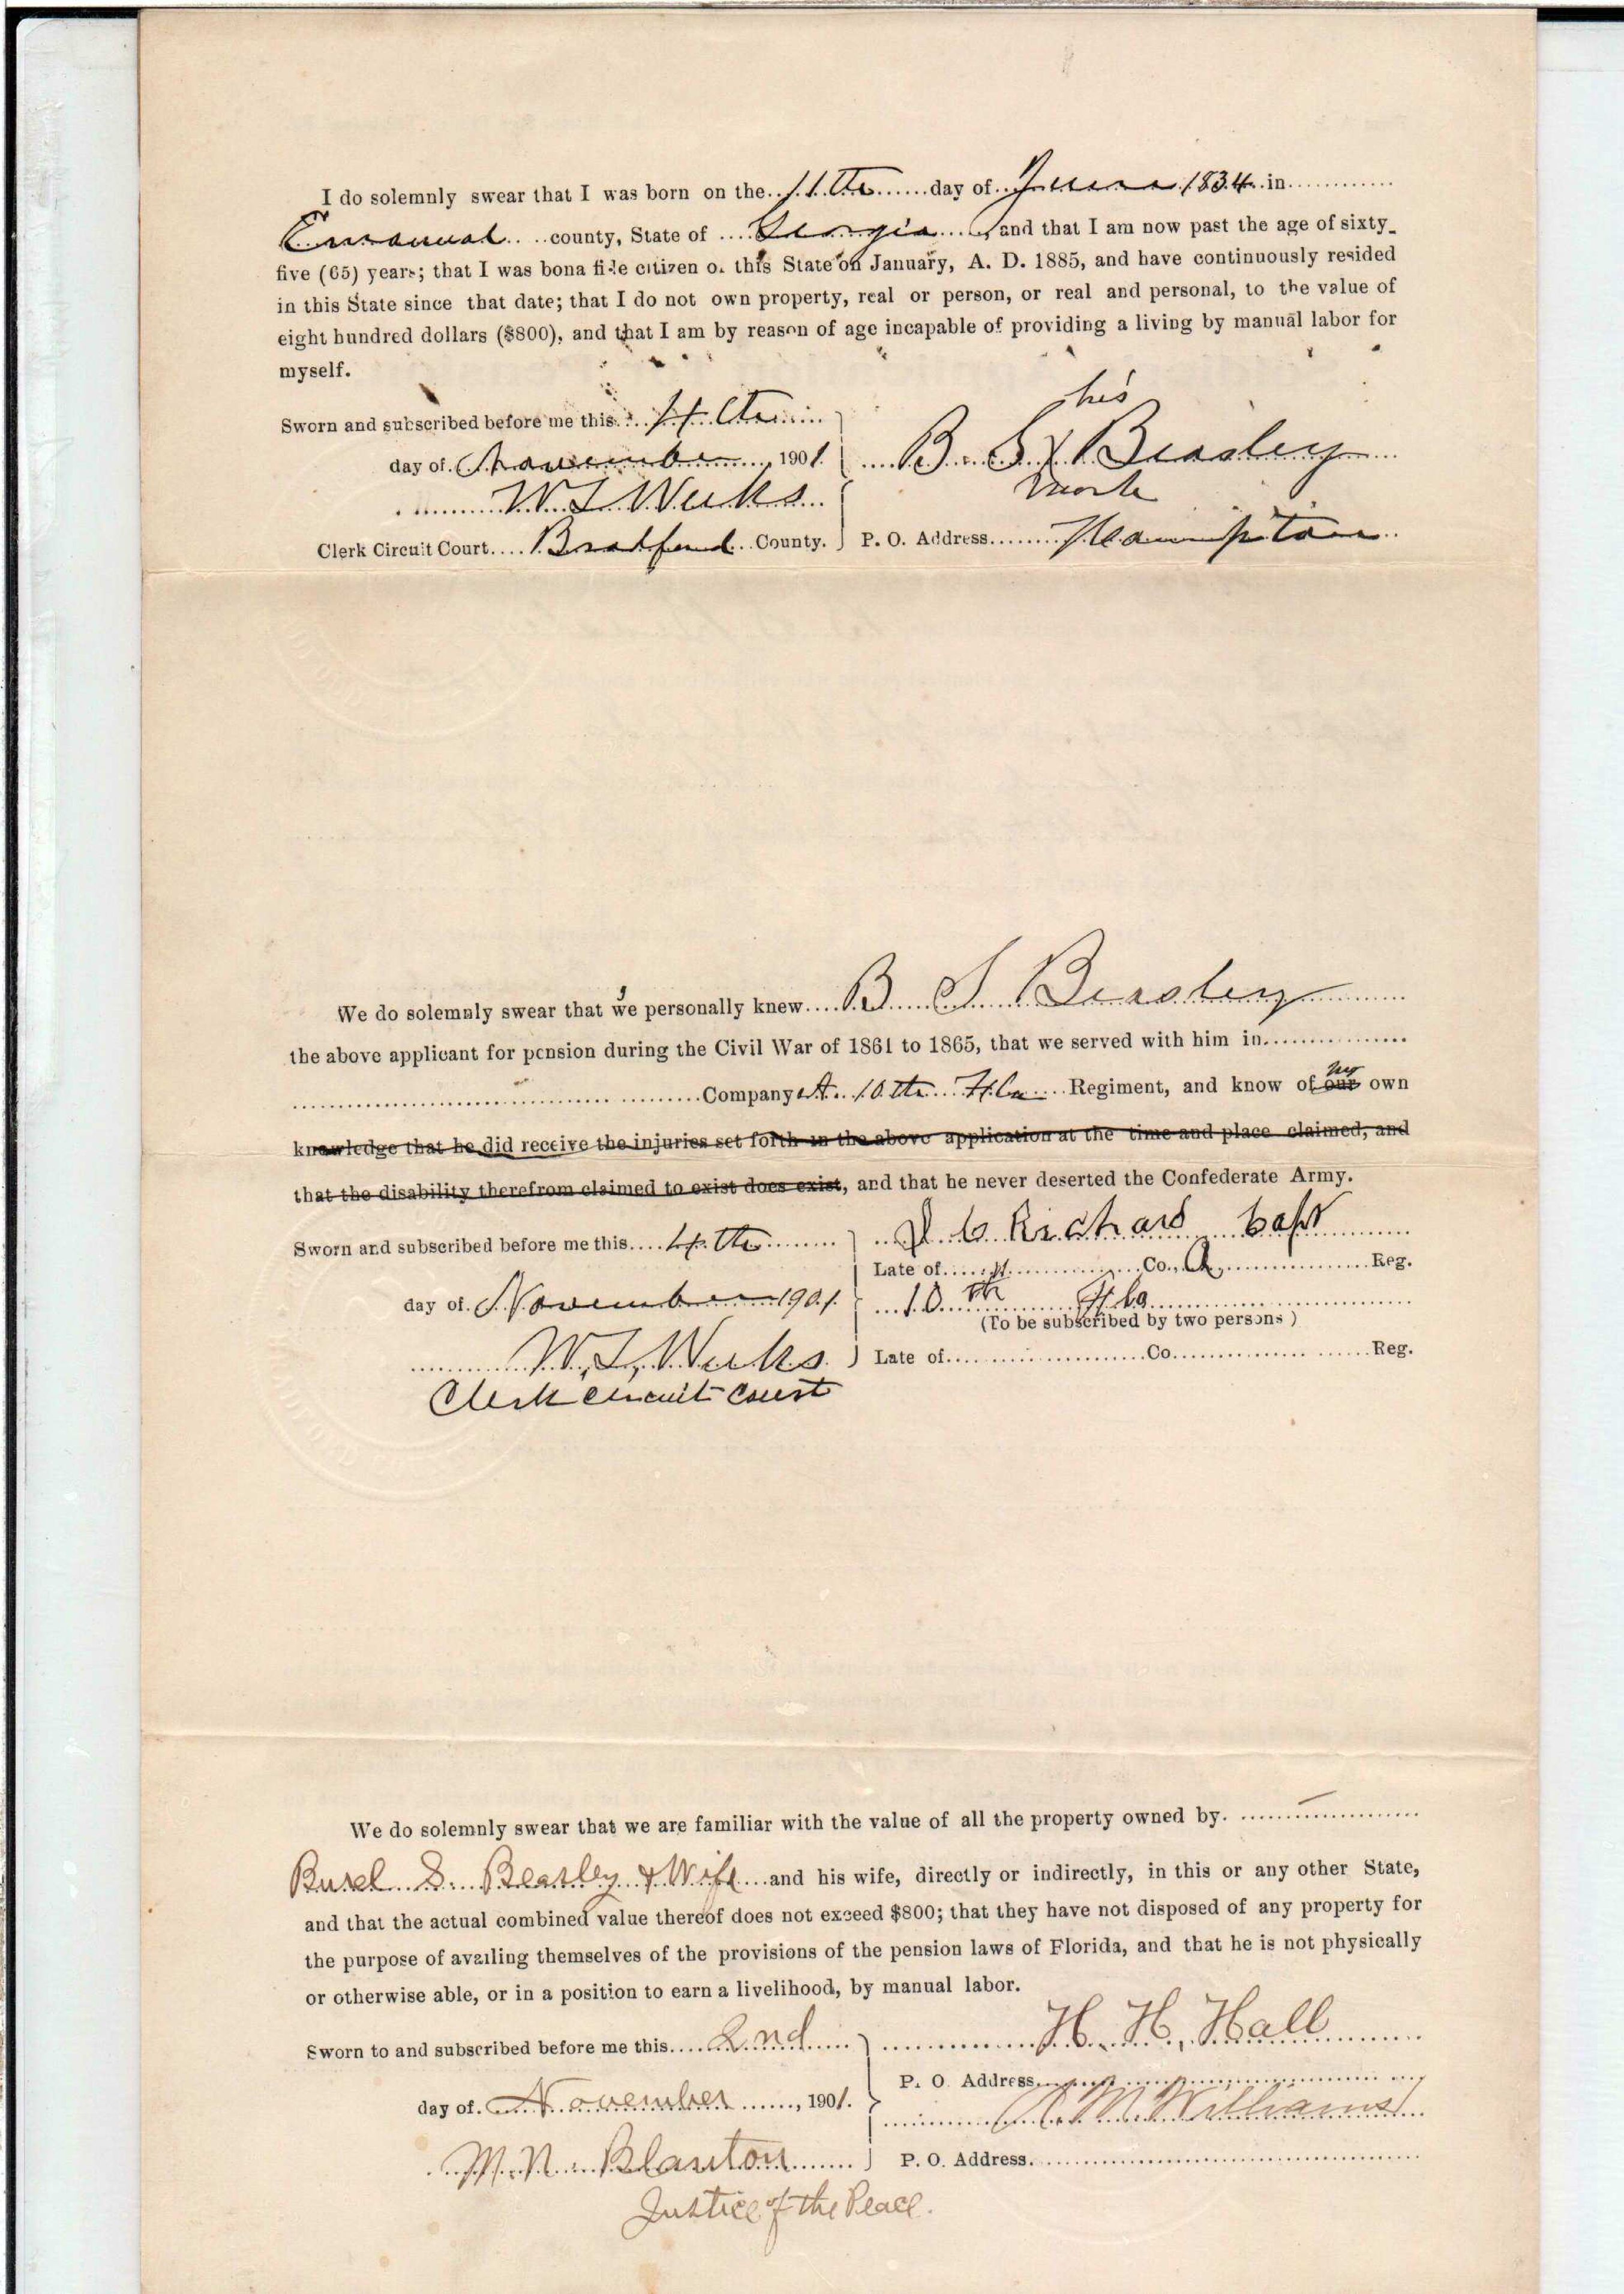 I do solemnly swear that I was born on the 11th day of June 1834 in
Emanuel county, State of Georgia, and that I am now past the age of sixty-
five (65) years; that I was bona fide citizen of this State on January, A. D. 1885, and have continuously resided
in this State since that date; that I do not own property, real or person, or real and personal, to the value of
eight hundred dollars ($800), and that I am by reason of age incapable of providing a living by manual labor for
myself.
his
Sworn and subscribed before me this 4th
day of November, 1901. B. S. X Beasley
W L Weeks mark
Clerk Circuit Court Bradford County. P. O. Address Hampton
We do solemnly swear that we personally knew B S Beasley
the above applicant for pension during the Civil War of 1861 to 1865, that we served with him in
Company A. 10th Fla Regiment, and know of our my own
knowledge that he did receive the injuries set forth in the above application at the time and place claimed, and
that the disability therefrom claimed to exist does exist, and that he never deserted the Confederate Army.
Sworn and subscribed before me this 4th Richard Capt
Late of Co., A Reg.
day of November 1901. 10th Fla
(To be subscribed by two persons)
W. L. Weeks Late of Co. Reg.
Clerk circuit court
We do solemnly swear that we are familiar with the value of all the property owned by.
Burel S. Beasley & Wife and his wife, directly or indirectly, in this or any other State,
and that the actual combined value thereof does not exceed $800; that they have not disposed of any property for
the purpose of availing themselves of the provisions of the pension laws of Florida, and that he is not physically
or otherwise able, or in a position to earn a livelihood, by manual labor.
Sworn to and subscribed before me this 2nd H. H. Hall
P. O. Address
day of November, 1901. M Williams
M. N. Blanton P. O. Address.
Justice of the Peace.